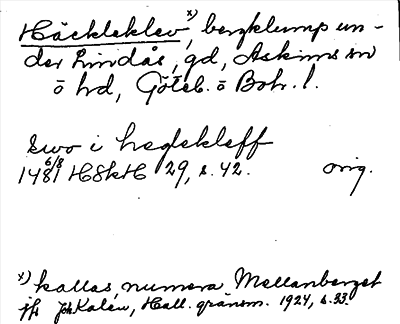 Häckleklev x), bergklump un-
der Lindås, gd, Askims sn
o hd, Göteb. o Boh. l.
Ewo i heglekleff
6/8
1481 HSkH 29, s. 42. orig.
x) kallas numera Mellanberget
jfr Joh Kalén, Hall. gränsm. 1924, s. 33.